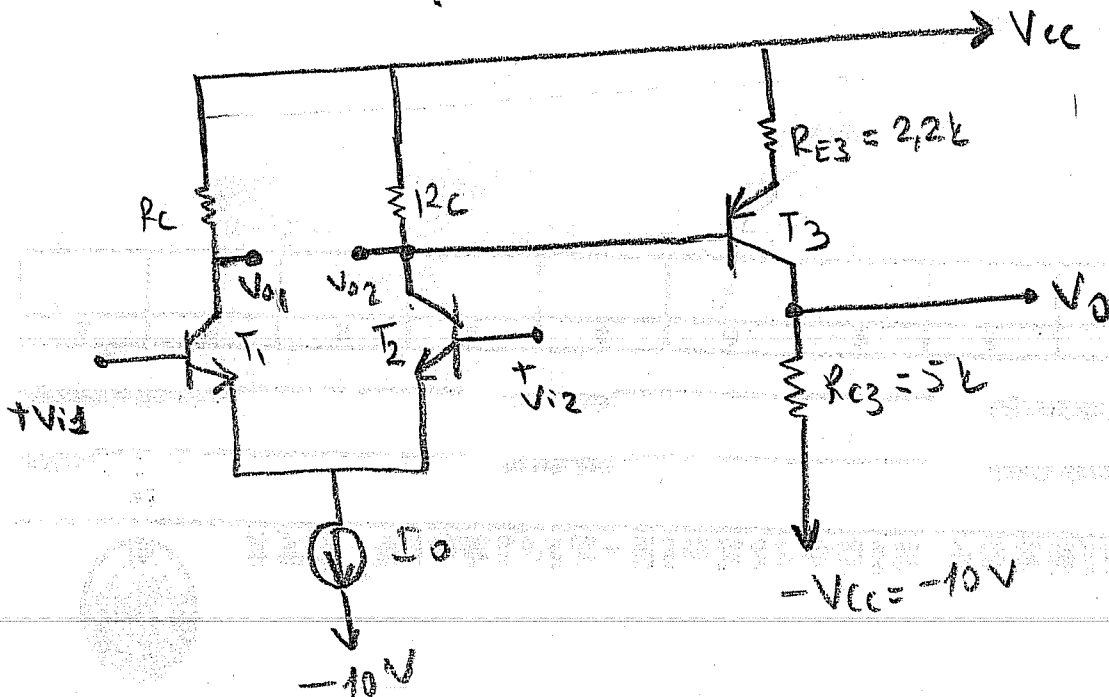 Vcc
RE3 = 2,2k
Rc
12c
T3
Vo1
Vo2
Vo
T1
T2
+Vi1
+
Vi2
Rc3 = 5k
Io
-Vcc = -10V
-10V